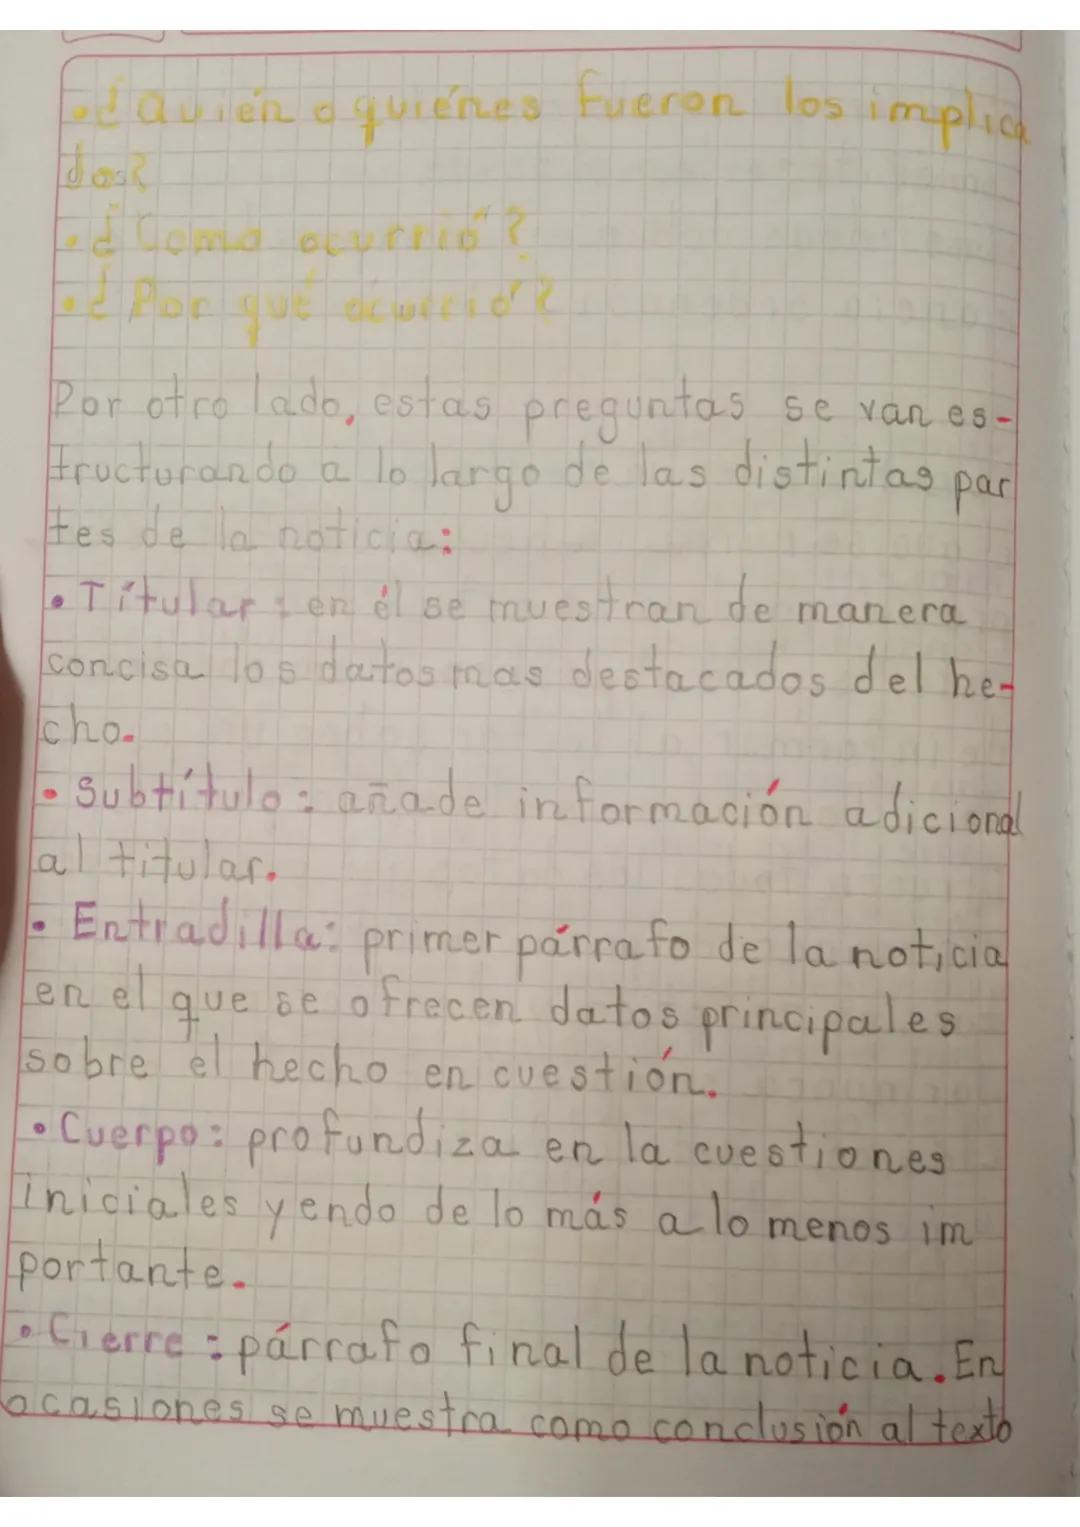 • ¿Quién o quiénes fueron los implica
dos?
• ¿Como ocurrió?
• ¿Por qué ocurrió?
Por otro lado, estas preguntas se van es-
tructurando a lo largo de las distintas par
tes de la noticia:
• Títular: en él se muestran de manera
concisa los datos mas destacados del he-
cho.
• Subtítulo: añade información adicional
al titular.
• Entradilla: primer párrafo de la noticia
en el que se ofrecen datos principales
sobre el hecho en cuestión.
• Cuerpo: profundiza en la cuestiones
iniciales yendo de lo más a lo menos im
portante.
• Cierre: párrafo final de la noticia. En
ocasiones se muestra como conclusión al texto